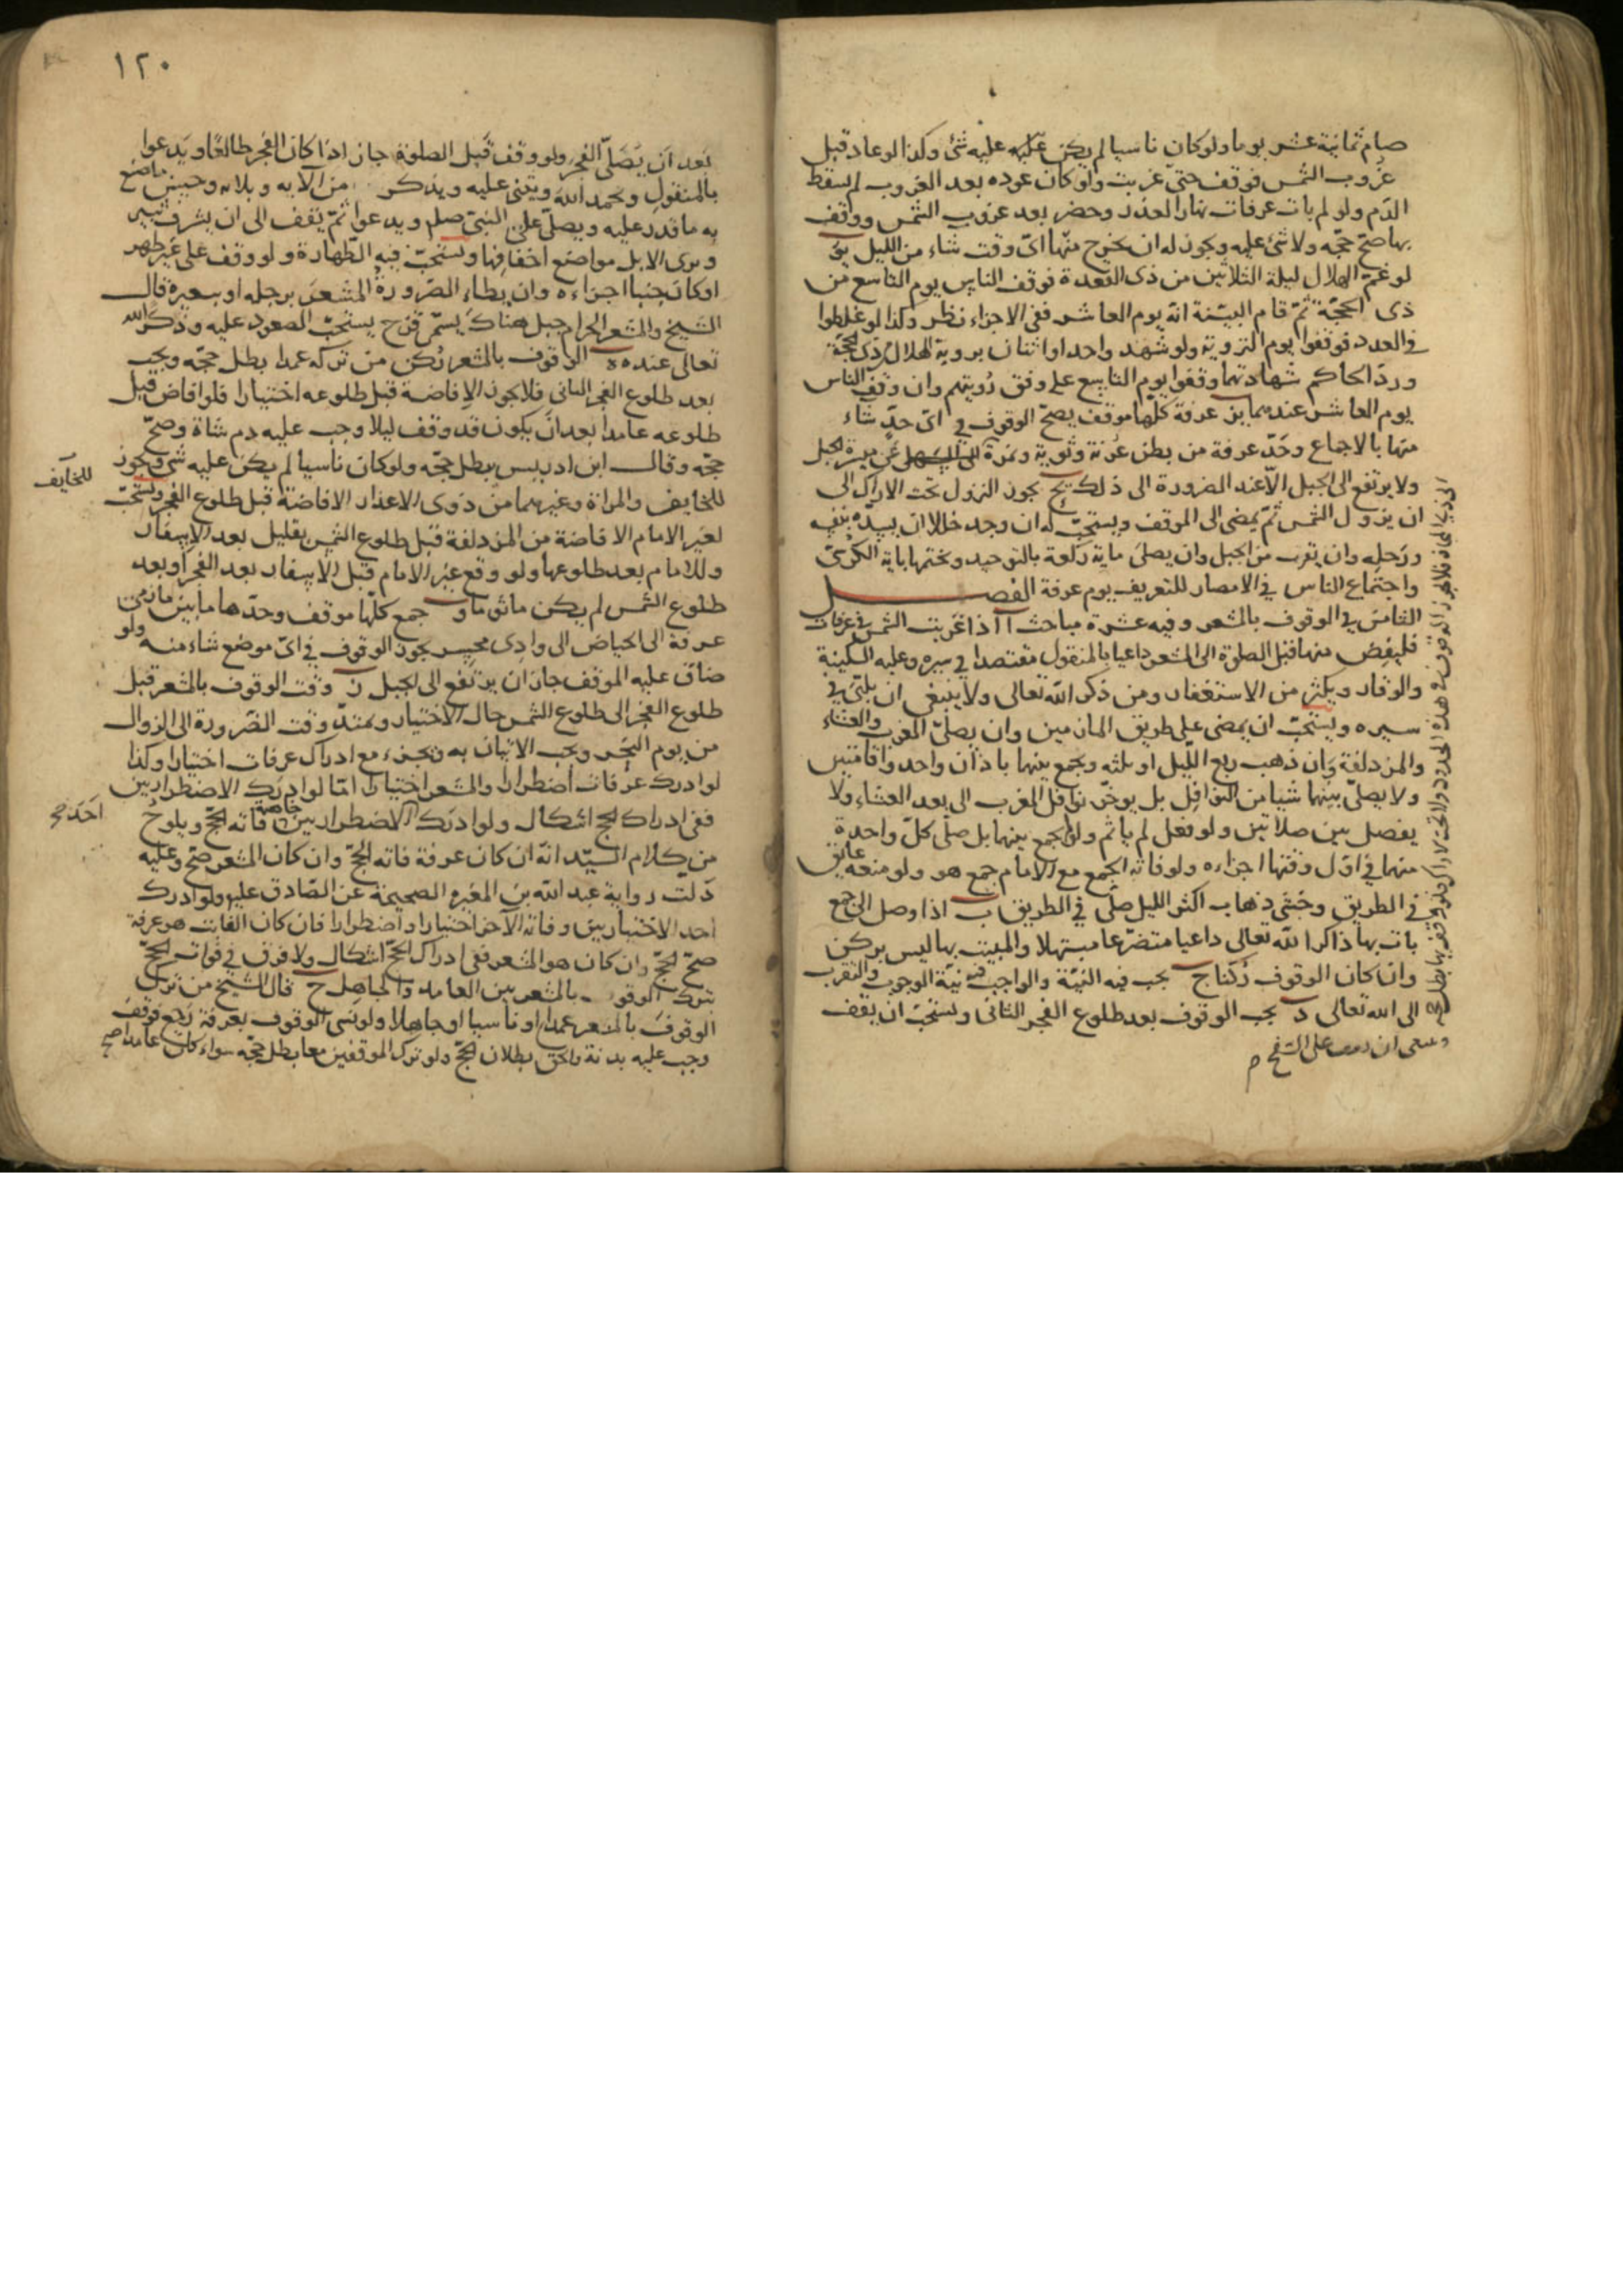 صام ثمانية عشر يوما ولو كان ناسيا لم يكن عليه شئ وكذا لو عاد قبل
غروب الشمس فوقف حتى غربت ولو كان عوده بعد الغروب لم يسقط
الدم ولو لم يات عرفات نهارا لعذر وحضر بعد غروب الشمس ووقف
بها صح حجه ولا شئ عليه ويجوز له ان يخرج منها اى وقت شاء من الليل
لو غم الهلال ليلة الثلاثين من ذى القعدة فوقف الناس يوم التاسع من
ذى الحجة ثم قام البينة انه يوم العاشر ففى الاجزاء نظر وكذا لو غلطوا
فى العدد فوقفوا يوم التروية ولو شهد واحد او اثنان بروية هلال ذى الحجة
ورد الحاكم شهادتهما وقفوا يوم التاسع على وفق رؤيتهم وان وقف الناس
يوم العاشر عندهما يز عرفة كلها موقف يصح الوقوف فى اى حد شاء
منها بالاجماع وحد عرفة من بطن عرنة وثوية ونمرة عن ميسرة الجبل
ولا يرتفع الى الجبل الا عند الضرورة الى ذلك يح يجوز النزول تحت الاراك الى
ان يزول الشمس ثم يمضى الى الموقف ويستحب له ان وجد خللا ان يسده بنفسه
ورحله وان يقرب من الجبل وان يصلى ماية ركعة بالتوحيد ويختمها باية الكرسى
واجتماع الناس فى الامصار للتعريف يوم عرفة الفصل
الثامن فى الوقوف بالمشعر وفيه عشرة مباحث ا اذا غربت الشمس فى عرفات
فليفض منها قبل الصلوة الى المشعر داعيا بالمنقول مقتصدا فى سيره وعليه السكينة
والوقار ويكثر من الاستغفار ومن ذكر الله تعالى ولا ينبغى ان يلبى فى
سيره ويستحب ان يمضى على طريق المازمين وان يصلى المغرب والعشاء
والمزدلفة وان ذهب ربع الليل او ثلثه ويجمع بينهما باذان واحد واقامتين
ولا يصلى بينهما شيا من النوافل بل يوخر نوافل المغرب الى بعد العشاء ولا
يفصل بين صلاتين ولو فعل لم ياثم ولو لم يجمع بينهما بل صلى كل واحدة
منهما فى اول وقتها اجزاه ولو فاته الجمع مع الامام جمع هو ولو منعه عائق
فى الطريق وخشى ذهاب اكثر الليل صلى فى الطريق ب اذا وصل الى جمع
بات بها ذاكرا لله تعالى داعيا متضرعا مبتهلا والمبيت بها ليس بركن
وان كان الوقوف ركنا ج يجب فيه النية والواجب فيه نية الوجوب والتقرب
الى الله تعالى د يجب الوقوف بعد طلوع الفجر الثانى ويستحب ان يقف
١٢٠
بعد ان يصلى الفجر ولو وقف قبل الصلوة جاز اذا كان الفجر طالعا ويدعوا
بالمنقول ويحمد الله ويثنى عليه ويذكر من الآيه وبلائه وحسن ما صنع
به ما قدر عليه ويصلى على النبى صلم ويدعوا ثم يقف الى ان يشرف ثبير
ويرى الابل مواضع اخفافها ويستحب فيه الطهارة ولو وقف على غير طهر
او كان جنبا اجزاءه وان يطاء الصرورة المشعر برجله او ببعيره قال
الشيخ والمشعر الحرام جبل هناك يسمى قزح يستحب الصعود عليه وذكر الله
تعالى عنده ه الوقوف بالمشعر ركن من تركه عمدا بطل حجه ويجب
بعد طلوع الفجر الثانى فلا يجوز الافاضة قبل طلوعه اختيارا فلو افاض قبل
طلوعه عامدا بعد ان يكون قد وقف ليلا وجب عليه دم شاة وصح
حجه وقال ابن ادريس يبطل حجه ولو كان ناسيا لم يكن عليه شئ ويجوز
للخايف
للخايف والمراة وغيرهما من ذوى الاعذار الافاضة قبل طلوع الفجر ويستحب
لغير الامام الافاضة من المزدلفة قبل طلوع الشمس بقليل بعد الاسفار
وللامام بعد طلوعها ولو وقع غير الامام قبل الاسفار بعد الفجر او بعد
طلوع الشمس لم يكن ماثوما و جمع كلها موقف وحدها ما بين مازمى
عرفة الى الحياض الى وادى محسر يجوز الوقوف فى اى موضع شاء منه ولو
ضاق عليه الموقف جاز ان يرتفع الى الجبل ز وقت الوقوف بالمشعر قبل
طلوع الفجر الى طلوع الشمس حال الاختيار ويمتد وقت الضرورة الى الزوال
من يوم النحر ويجب الاتيان به ويجزء مع ادراك عرفات اختيارا وكذا
لو ادرك عرفات اضطرارا والمشعر اختيارا اما لو ادرك الاضطراريين
ففى ادراك الحج اشكال ولو ادرك الاضطراريين خاصة فاته الحج ويلوح
احد صح
من كلام السيد انه ان كان عرفة فاته الحج وان كان المشعر صح وعليه
دلت رواية عبد الله بن المغيرة الصحيحة عن الصادق عليه ولو ادرك
احد الاختياريين وفاته الآخر اختيارا واضطرارا فان كان الفائت هو عرفة
صح الحج وان كان هو المشعر ففى ادراك الحج اشكال ولا فرق فى فوات الحج
بترك الوقوف بالمشعر بين العامد والجاهل ح قال الشيخ من ترك
الوقوف بالمشعر عمدا او ناسيا او جاهلا ولو نسى الوقوف بعرفة رجع فوقف
وجب عليه بدنة والحق بطلان الحج ولو ترك الموقفين معا بطل حجه سواء كان عامدا